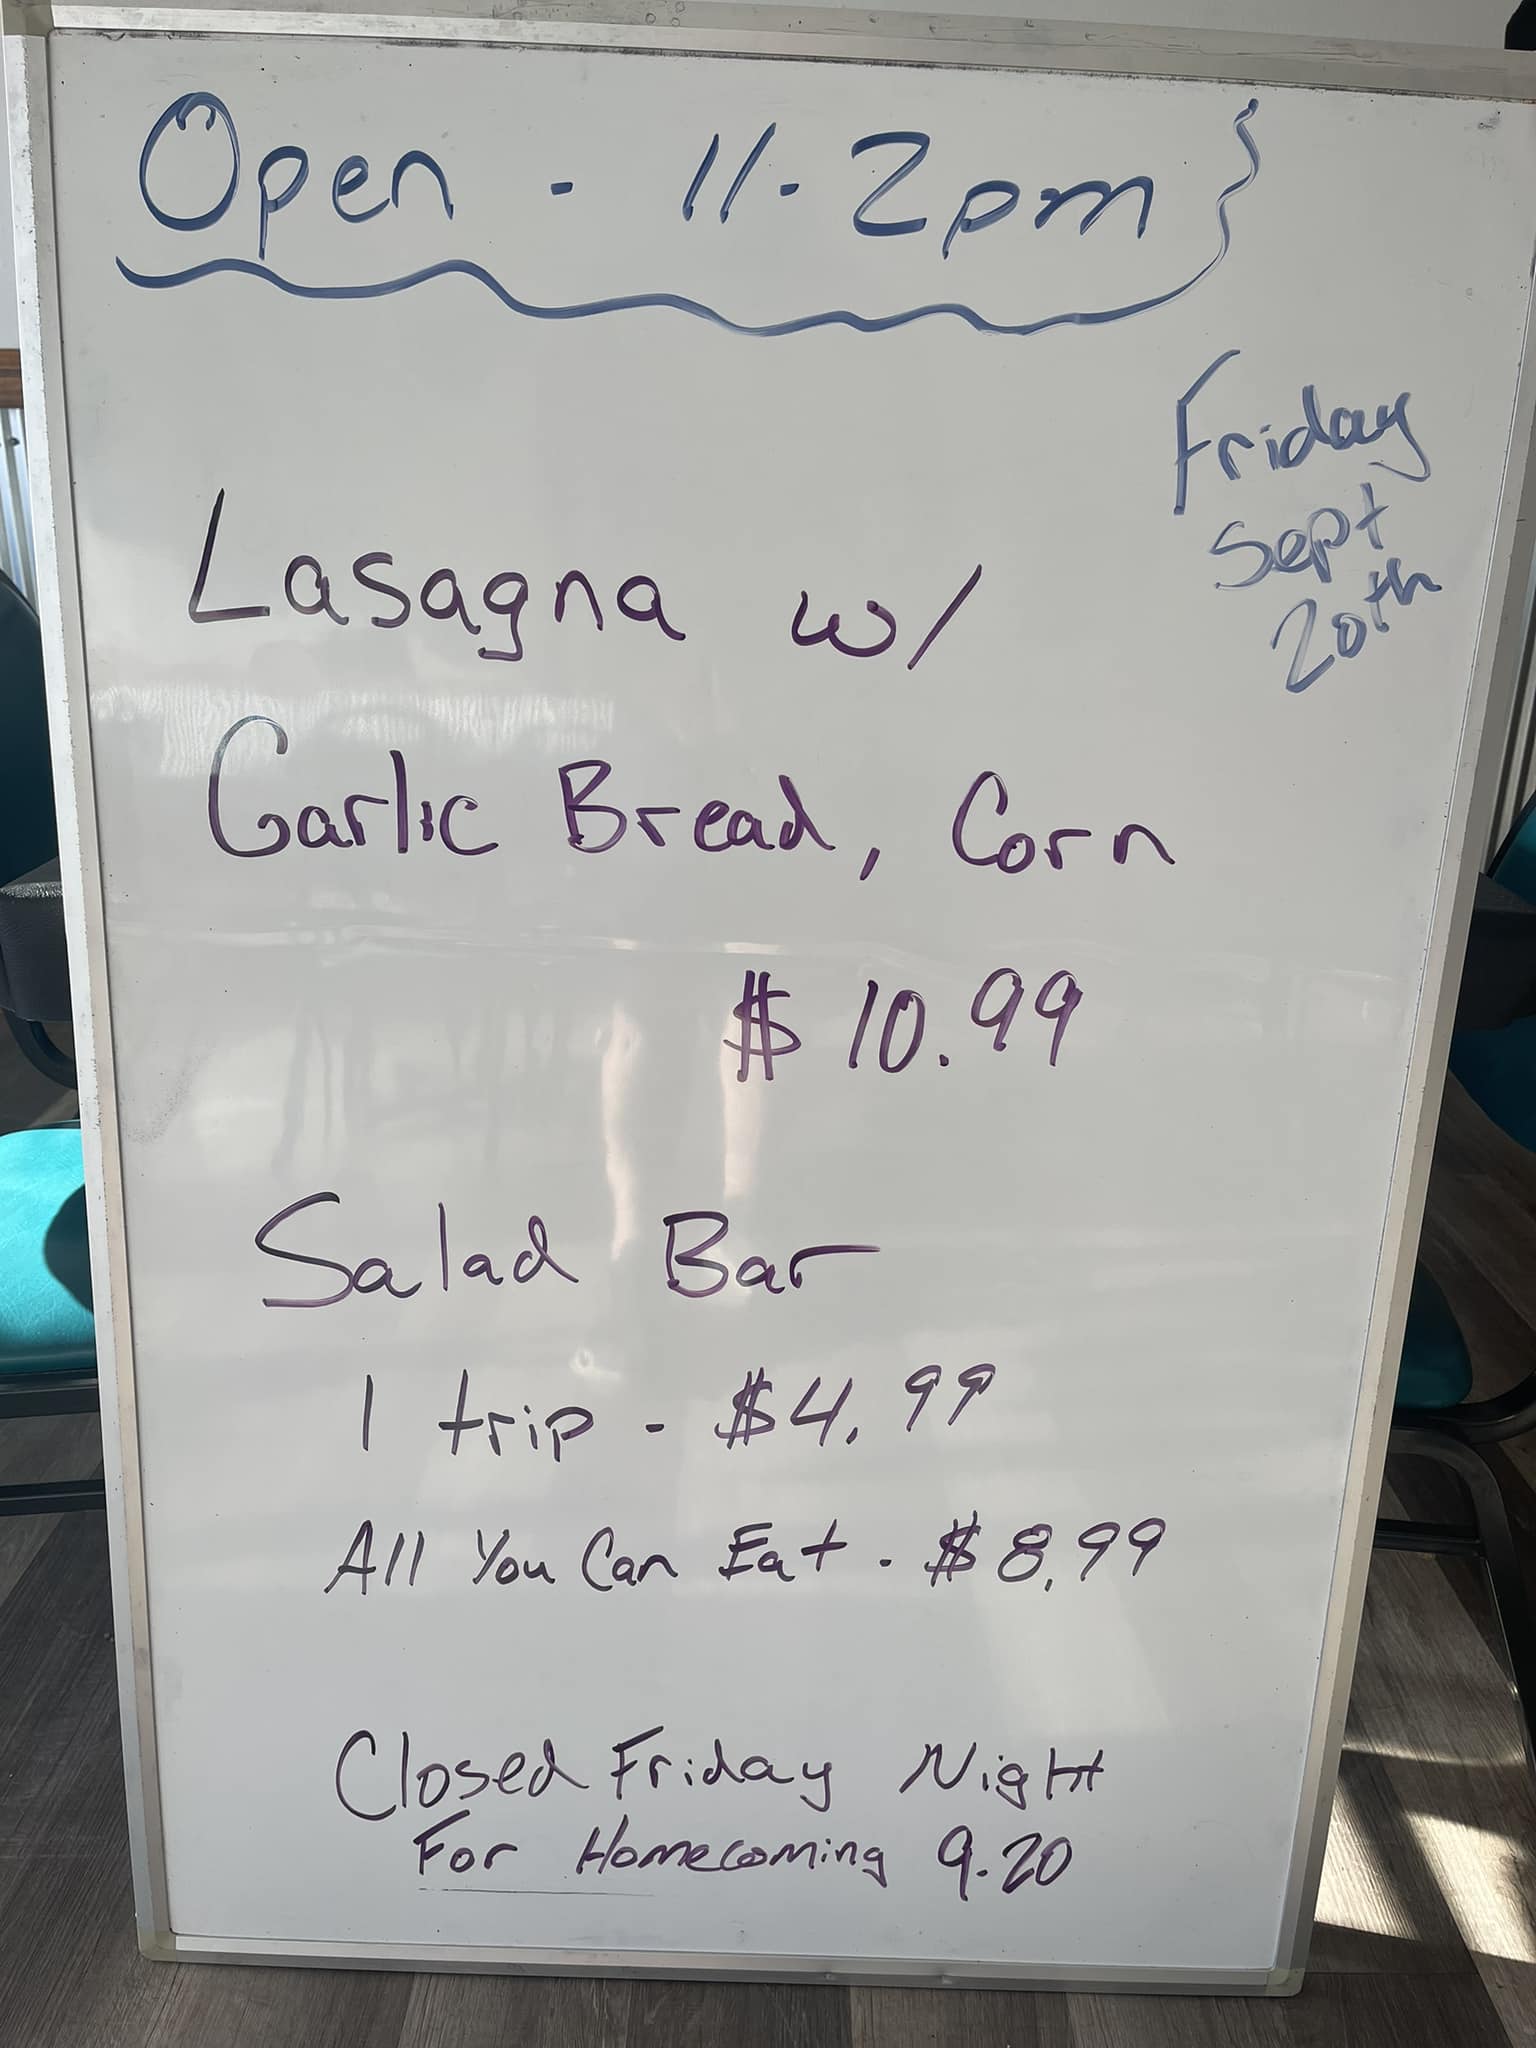 Open - 11-2pm
Friday
Sept
20th
Lasagna w/
Garlic Bread, Corn
$10.99
Salad Bar
1 trip - $4.99
All You Can Eat - $8.99
Closed Friday Night
For Homecoming 9-20